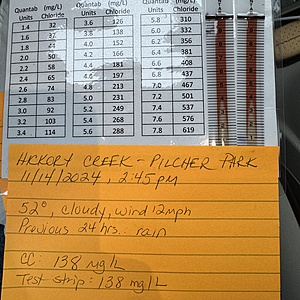 Quantab (mg/L) Quantab (mg/L)
Units Chloride Units Chloride
1.4 32 3.6 126 5.8 310
1.6 3.8 139 6.0 332
1.8 4.0 152 6.2 356
2.0 4.2 166 6.4 381
2.2 58 4.4 181 6.6 408
2.4 65 4.6 197 6.8 437
2.6 74 4.8 213 7.0 467
2.8 83 5.0 231 7.2 501
3.0 92 5.2 249 7.4 537
3.2 103 5.4 268 7.6 576
3.4 114 5.6 288 7.8 619
HICKORY CREEK - PILCHER PARK
11/14/2024, 2:45pm
52°, cloudy, wind 12mph
Previous 24 hrs: rain
CC: 138 mg/L
Test strip: 138 mg/L